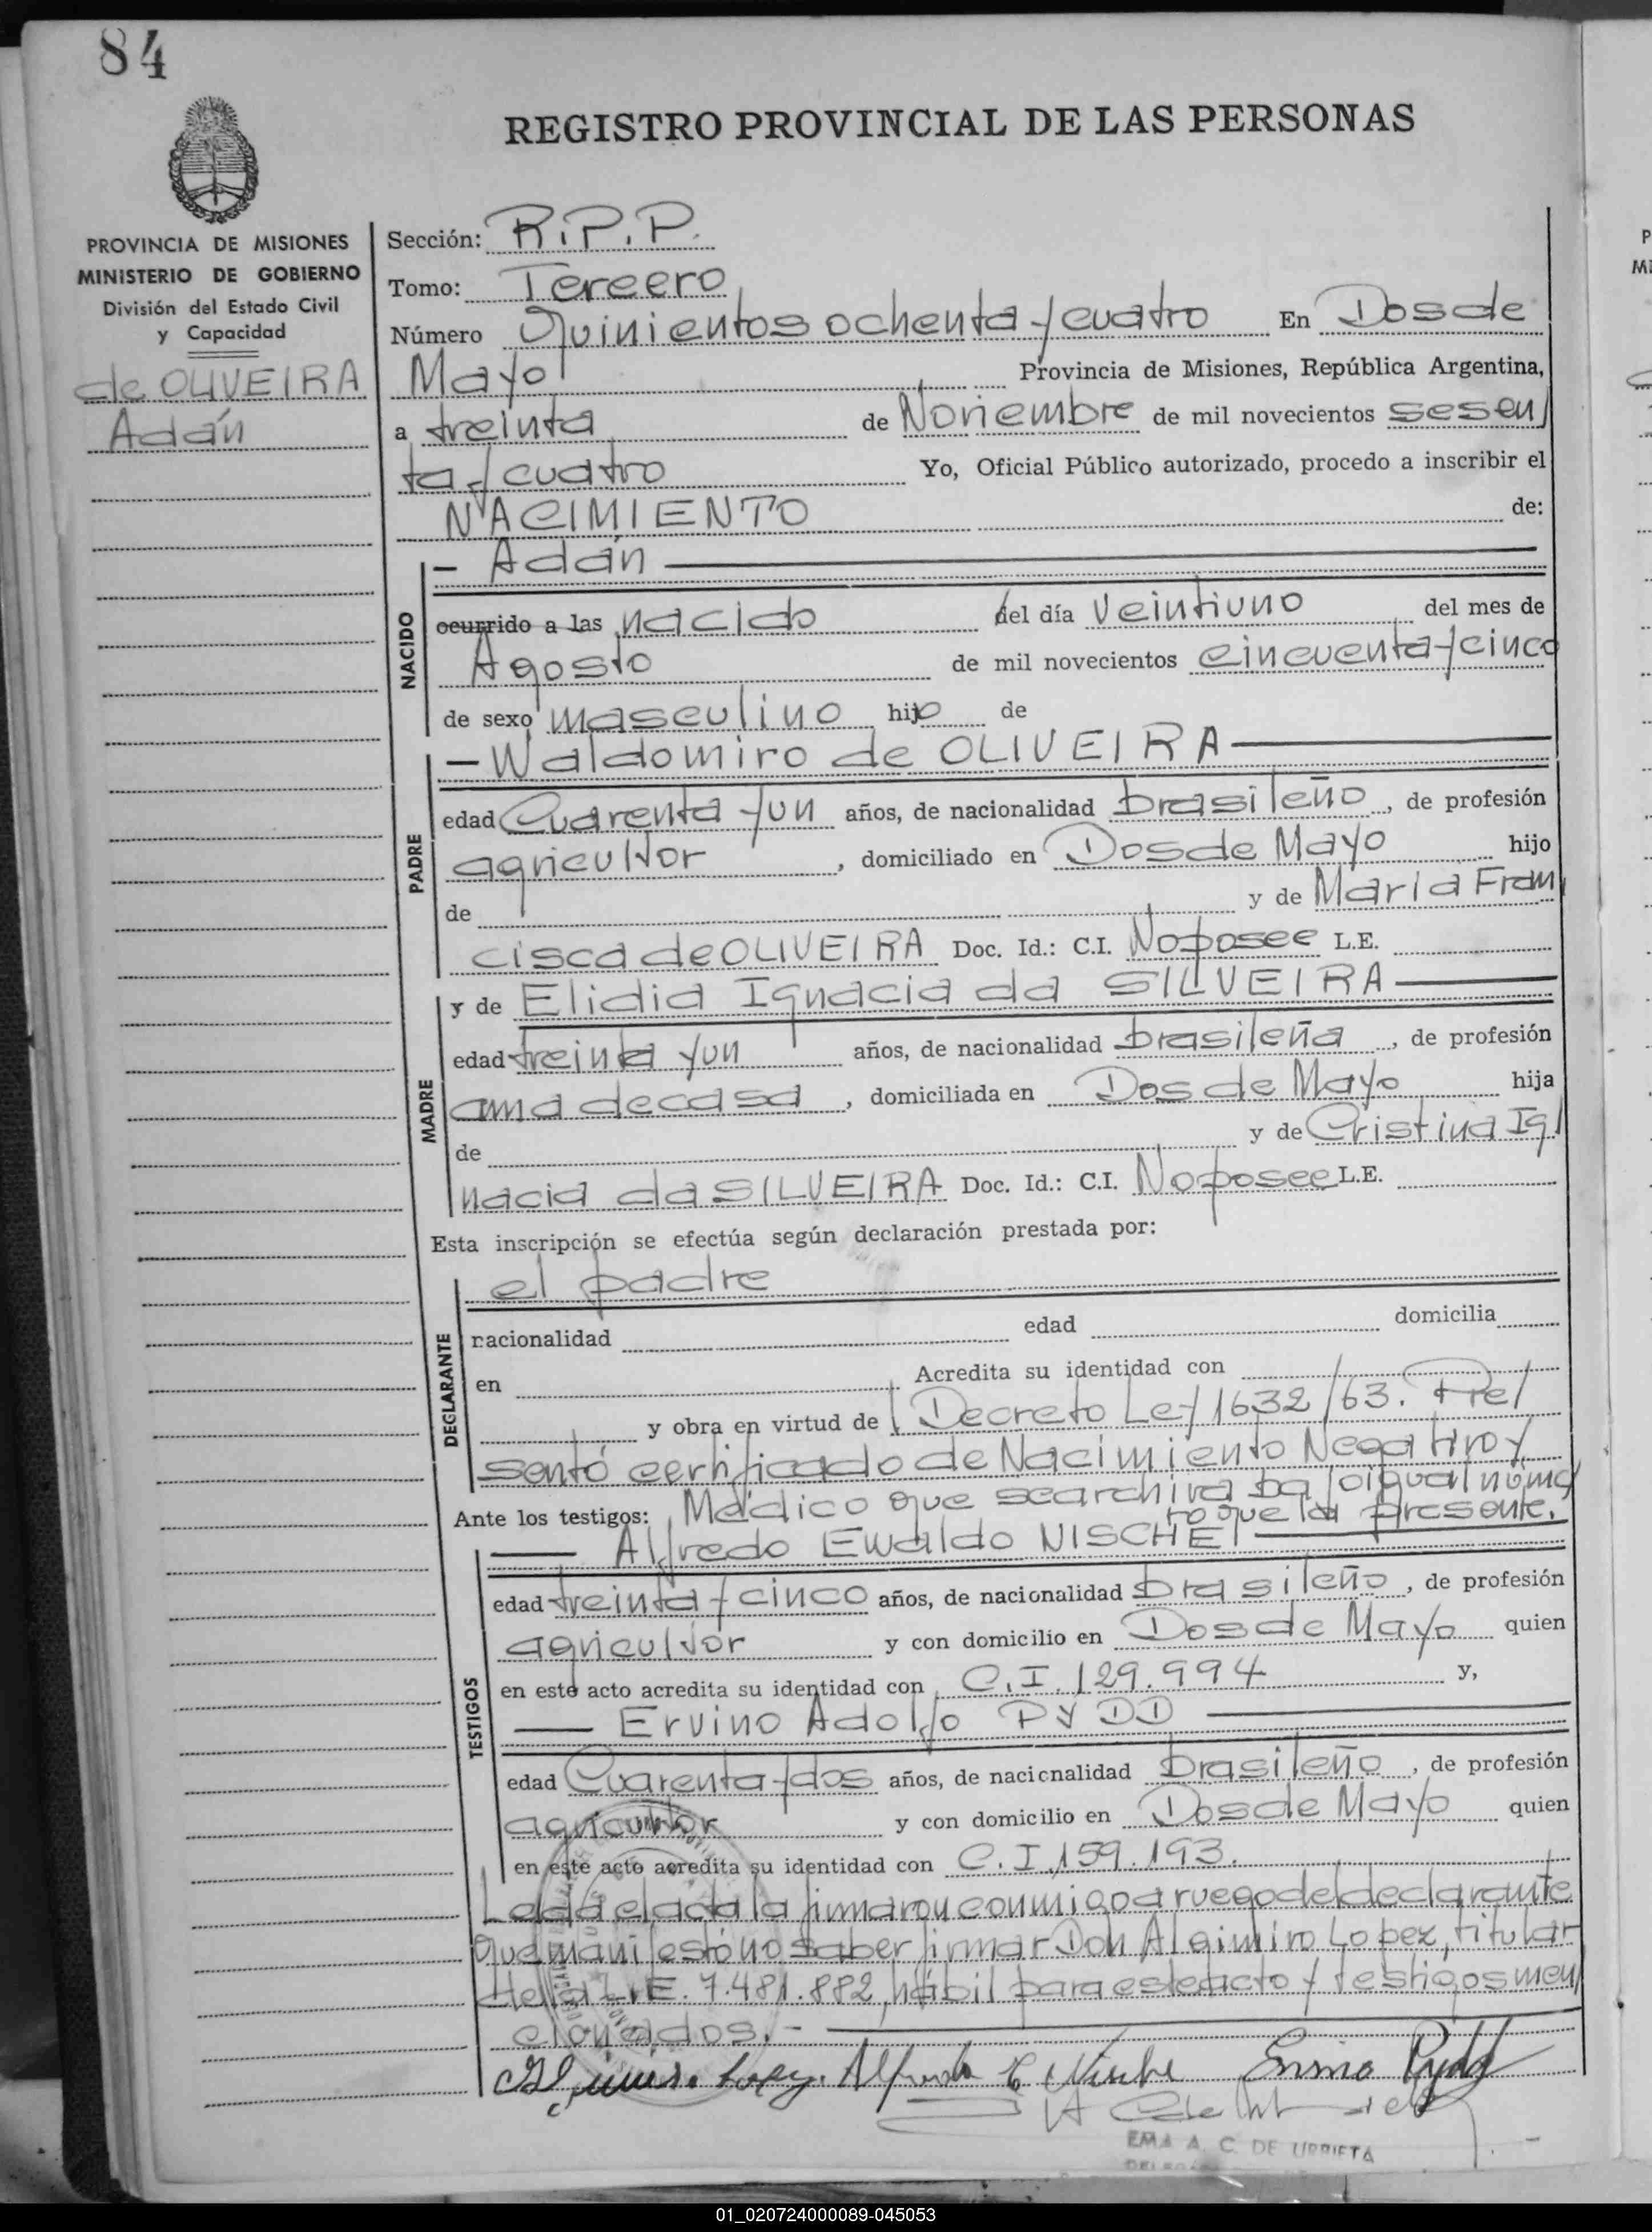 84
REGISTRO PROVINCIAL DE LAS PERSONAS
PROVINCIA DE MISIONES
MINISTERIO DE GOBIERNO
División del Estado Civil
y Capacidad
de OLIVEIRA
Adán
Sección: R.P.P.
Tomo: Tercero
Número Quinientos ochenta y cuatro En Dos de
Mayo Provincia de Misiones, República Argentina,
a treinta de Noviembre de mil novecientos sesen
ta y cuatro Yo, Oficial Público autorizado, procedo a inscribir el
NACIMIENTO de:
NACIDO
- Adán
ocurrido a las nacido del día veintiuno del mes de
Agosto de mil novecientos cincuenta y cinco
de sexo masculino hijo de
PADRE
- Waldomiro de OLIVEIRA
edad Cuarenta y un años, de nacionalidad brasileño, de profesión
agricultor, domiciliado en Dos de Mayo hijo
de y de María Fran
cisca de OLIVEIRA Doc. Id.: C.I. No posee L.E.
MADRE
y de Elidia Ignacia da SILVEIRA
edad treinta y un años, de nacionalidad brasileña, de profesión
ama de casa, domiciliada en Dos de Mayo hija
de y de Cristina Ig
nacia da SILVEIRA Doc. Id.: C.I. No posee L.E.
Esta inscripción se efectúa según declaración prestada por:
DECLARANTE
el padre
nacionalidad edad domicilia
en Acredita su identidad con
y obra en virtud de Decreto Ley 1632/63. Pre/
sentó certificado de Nacimiento Negativo y
Ante los testigos: Médico que se archiva bajo igual núme
ro que la presente.
TESTIGOS
Alfredo Ewaldo NISCHE
edad treinta y cinco años, de nacionalidad brasileño, de profesión
agricultor y con domicilio en Dos de Mayo quien
en este acto acredita su identidad con C.I. 129.994 y,
Ervino Adolfo PYDD
edad Cuarenta y dos años, de nacionalidad brasileño, de profesión
agricultor y con domicilio en Dos de Mayo quien
en este acto acredita su identidad con C.I. 159.193.
Leída el acta la firmaron conmigo a ruego del declarante
que manifestó no saber firmar Don Algimiro Lopez, titular
de la L.E. 7.481.882, hábil para este acto y testigos men
cionados.-
Lopez. Alfredo E Nische Ervino Pydd
EMA A. C. DE URRIETA
01_020724000089-045053